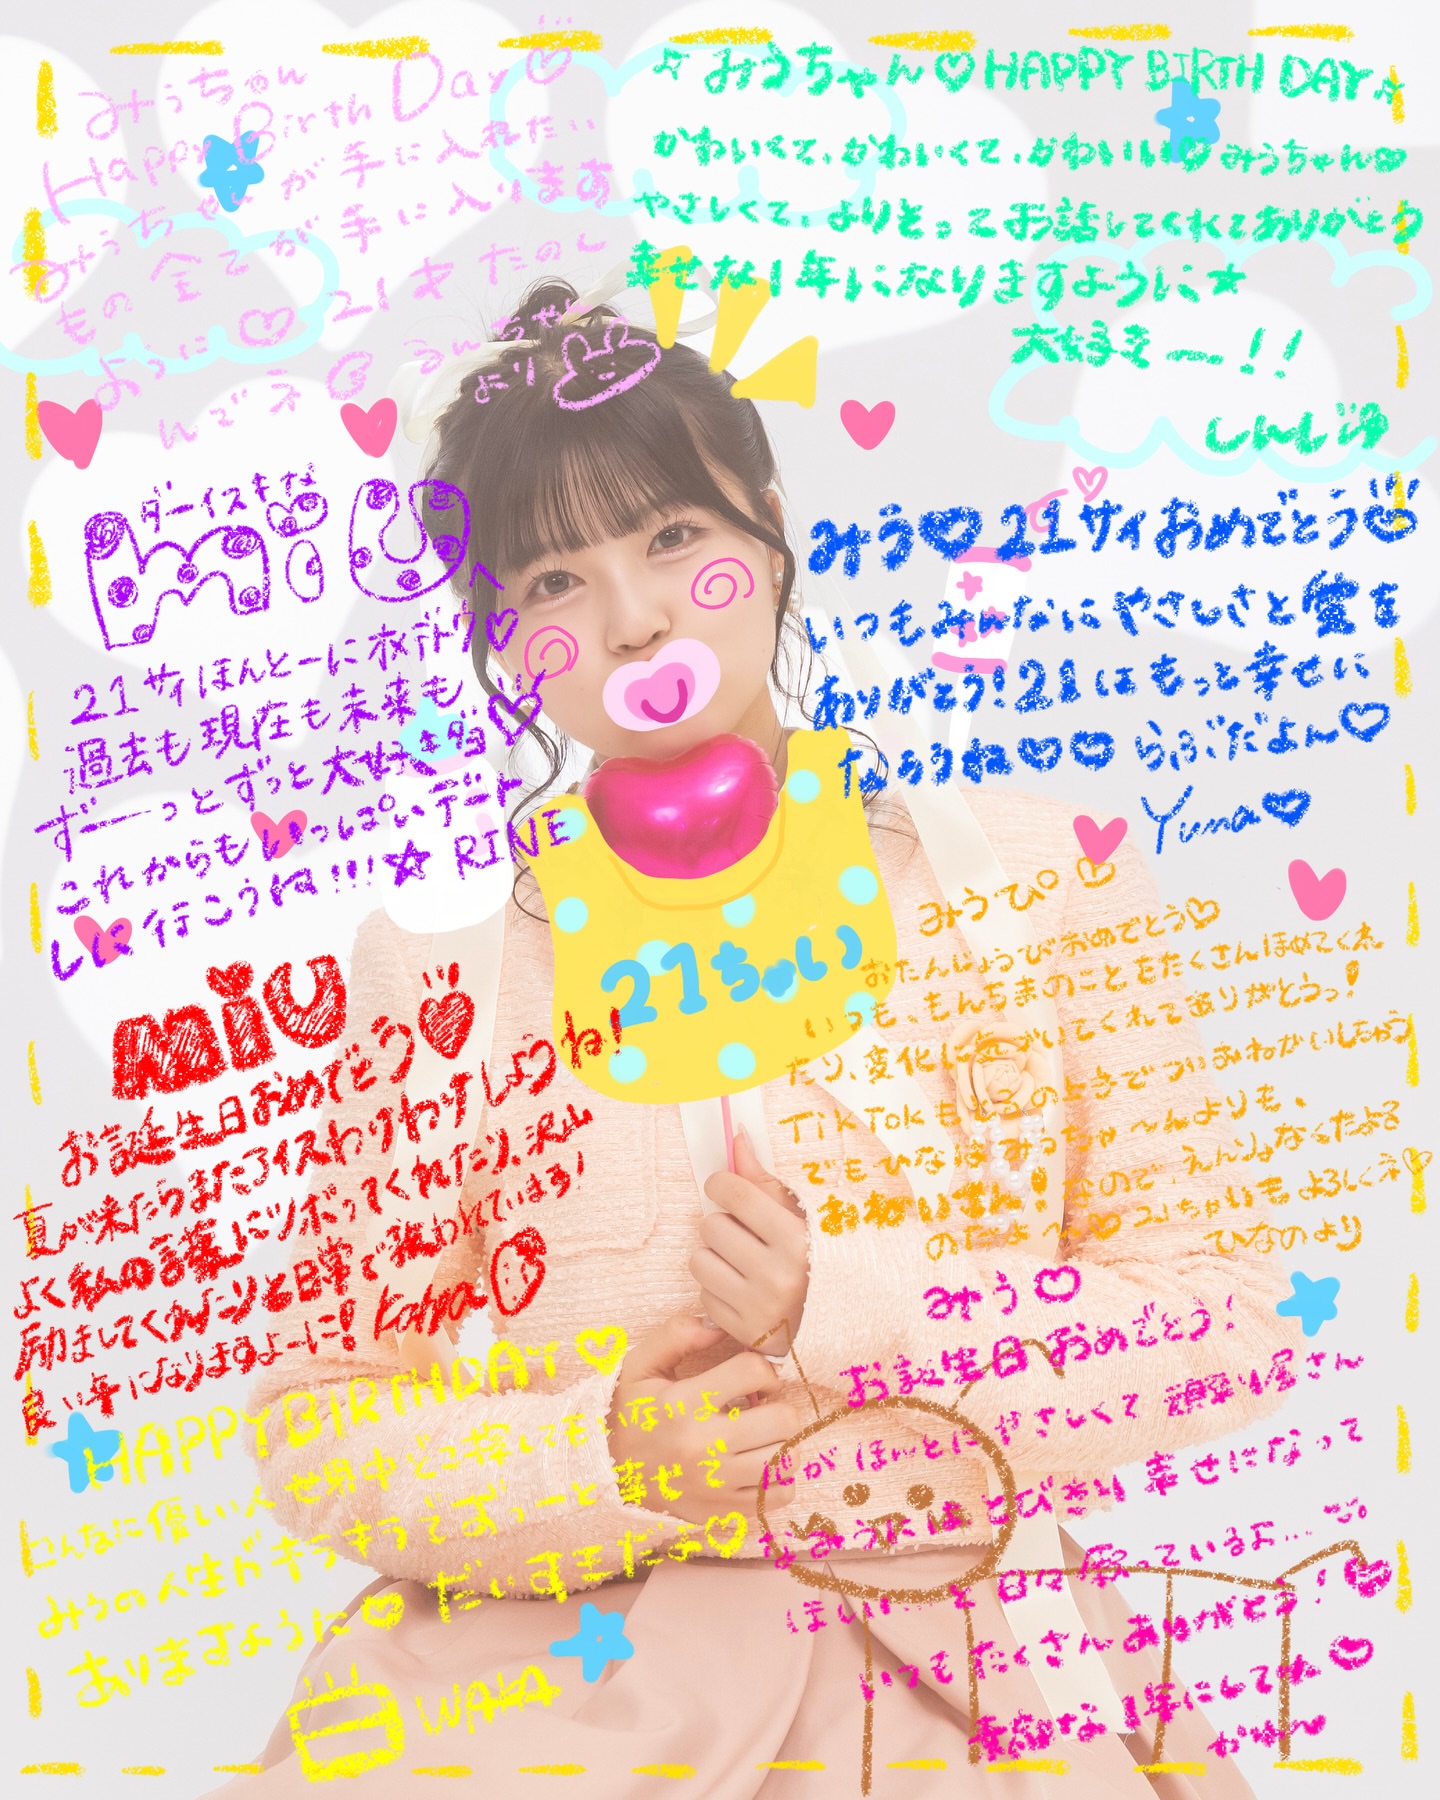 みうちゃん
Happy Birth Day♡
みうちゃんが手に入れたい
もの全てが手に入ります
ように♡ 21才たのし
んでネ
より
☆みうちゃん♡HAPPY BIRTH DAY☆
かわいくて、かわいくて、かわいい♡みうちゃん♡
やさしくて、よりそってお話してくれてありがとう
幸せな1年になりますように★
大好き〜!!
しんじゅ
ダーイスキな
miU へ
21サイほんとーにオメデトウ♡
過去も現在も未来も
ずーーっとずっと大好きダヨ♡
これからもいっぱいデート
しに行こうね!!!☆ RINE
みう♡21サイおめでとう
いつもみんなにやさしさと愛を
ありがとう!21はもっと幸せに
なろうね♡♡ らぶだよん♡
Yuna♡
21ちゃい
みうぴ♡
おたんじょうびおめでとう♡
いつも、もんちまのことをたくさんほめてくれ
たり、変化に気がいてくれてありがとうっ!
TikTokも
でもひなはみっちゃ〜んよりも、
おねいさん!なので、えんりょなくたよる
のだよ〜♡ 21ちゃいもよろしくネ♡
ひなのより
MiU
お誕生日おめでとう♡
夏が来たらまたアイスわけわけしようね!
よく私の言葉にツボってくれたり、沢山
励ましてくれたりと日常で救われている!
良い年になりますよーに!
HAPPY BIRTHDAY♡
こんなに優しい人世界中どこ探してもいないよ。
みうの人生がキラキラでずーっと幸せで
ありますように♡ だいすきだよ♡
WAKA
みう♡
お誕生日おめでとう!
心がほんとにやさしくて頑張り屋さん
なみうにはとびきり幸せになって
ほしい…と日々願っているよ…
いつもたくさんありがとう!
素敵な1年にしてね♡